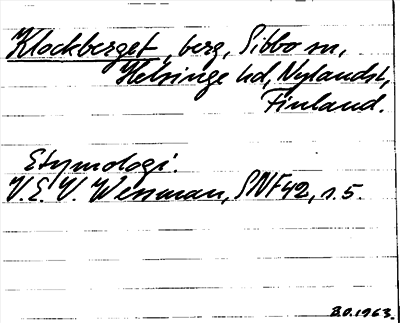 Klockberget, berg, Sibbo sn,
Helsinge hd, Nylands l.,
Finland.
Etymologi.
V.E.V. Wessman, SNF 42, s. 5.
B.O. 1963.